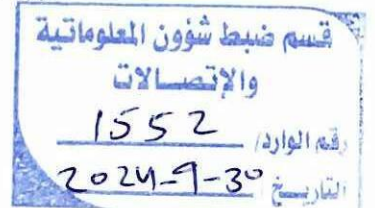 قسم ضبط شؤون المعلوماتية
والإتصالات
رقم الوارد/ 1552
التاريخ 2024-9-30